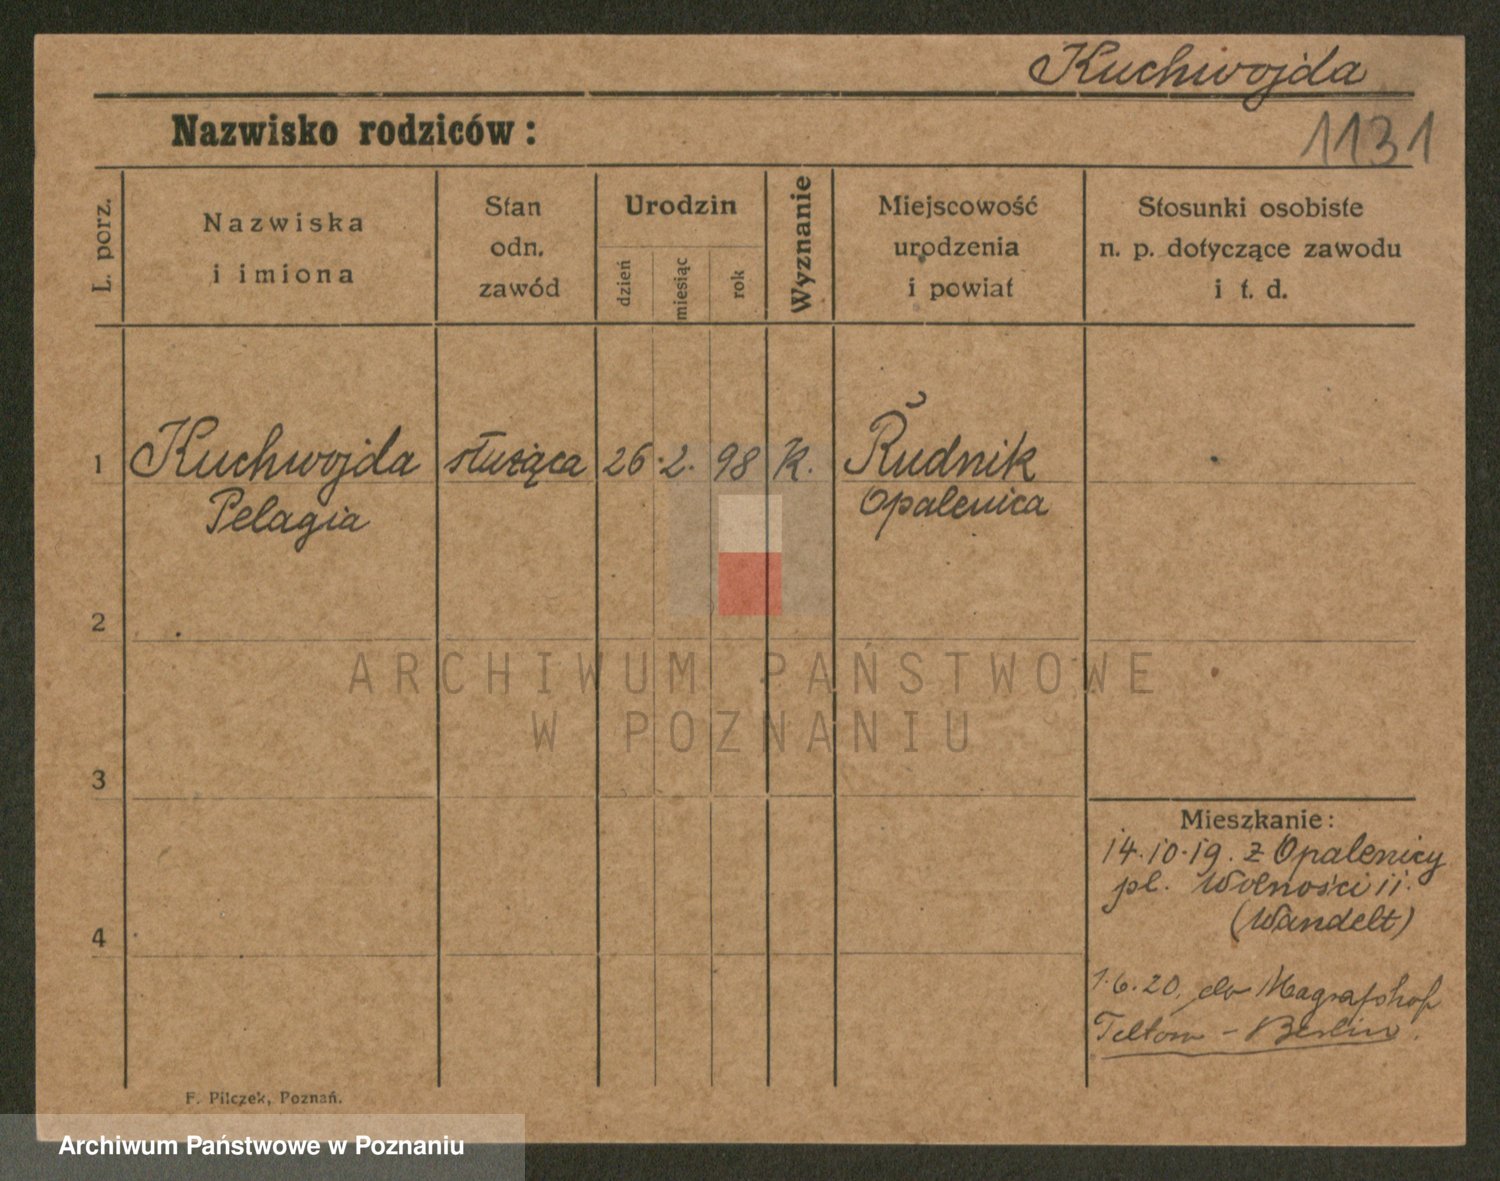 Kuchwojda
Nazwisko rodziców:
1131
L. porz.
Nazwiska
i imiona
Stan
odn.
zawód
Urodzin
dzień
miesiąc
rok
Wyznanie
Miejscowość
urodzenia
i powiat
Stosunki osobiste
n. p. dotyczące zawodu
i t. d.
1 Kuchwojda służąca 26. 2. 98 K. Rudnik
Pelagia Opalenica
2
3
4
Mieszkanie:
14.10.19. z Opalenicy
pl. Wolności 11.
(Wandelt)
1.6.20. do
Teltow - Berlin.
F. Pilczek, Poznań.
ARCHIWUM PAŃSTWOWE
W POZNANIU
Archiwum Państwowe w Poznaniu